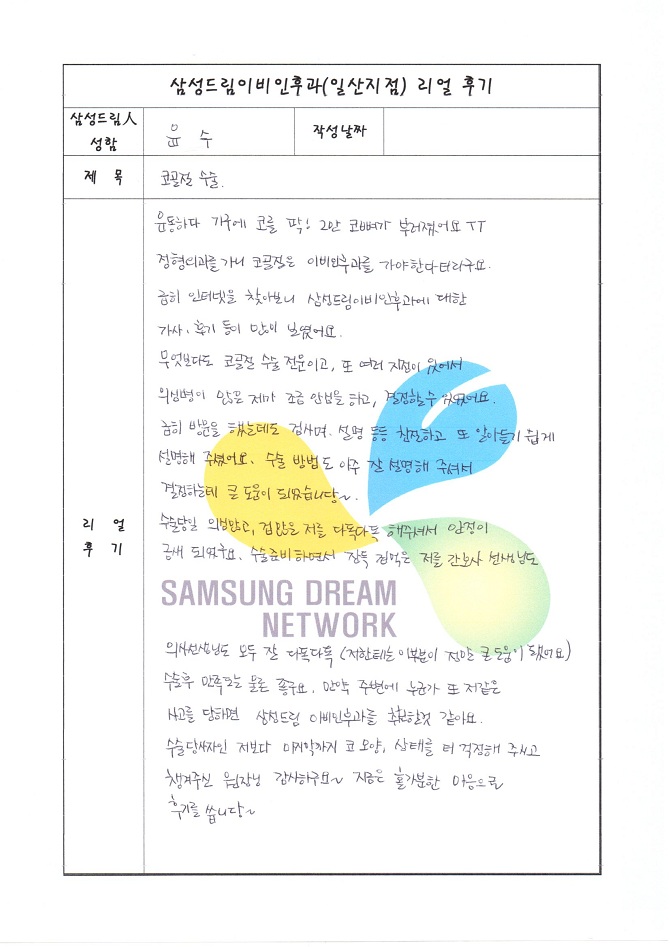 삼성드림이비인후과(일산지점) 리얼 후기
삼성드림人
성함
윤 수
작성날짜
제 목
코골절 수술.
운동하다 가구에 코를 팍! 그만 코뼈가 부러졌어요 ㅜㅜ
정형외과를 가니 코골절은 이비인후과를 가야한다더라구요.
급히 인터넷을 찾아보니 삼성드림이비인후과에 대한
기사, 후기 등이 많이 보였어요.
무엇보다도 코골절 수술 전문이고, 또 여러 지점이 있어서
의심병이 많은 제가 조금 안심을 하고, 결정할 수 있었어요.
급히 방문을 했는데도 검사며, 설명 등등 친절하고 또 알아듣기 쉽게
설명해 주셨어요. 수술 방법도 아주 잘 설명해 주셔서
결정하는데 큰 도움이 되었습니당~
리 얼
후 기
수술당일 의심많고, 겁많은 저를 다독다독 해주셔서 안정이
금새 되었구요. 수술준비하면서 잔뜩 겁먹은 저를 간호사 선생님도
SAMSUNG DREAM
NETWORK
의사선생님도 모두 잘 다독다독 (저한테는 이부분이 정말 큰 도움이 됐어요)
수술후 만족도는 물론 좋구요. 만약 주변에 누군가 또 저같은
사고를 당하면 삼성드림 이비인후과를 추천할것 같아요.
수술당사자인 저보다 마지막까지 코 모양, 상태를 더 걱정해 주시고
챙겨주신 원장님 감사하구요~ 지금은 홀가분한 마음으로
후기를 씁니당~